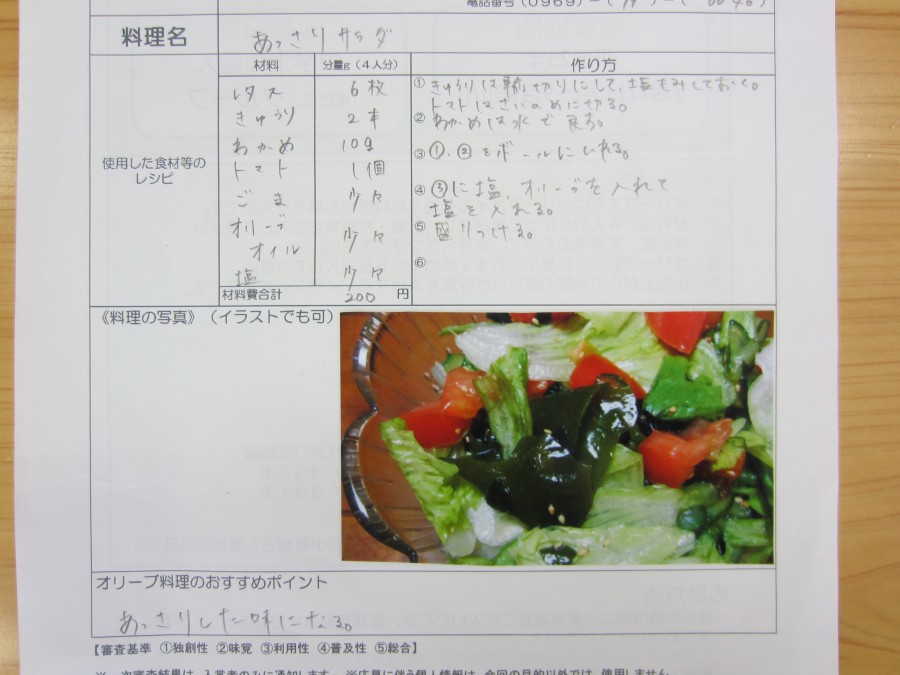 電話番号(0969)-(
料理名
あっさりサラダ
材料
分量g(4人分)
作り方
使用した食材等の
レシピ
レタス 6枚
きゅうり 2本
わかめ 10g
トマト 1個
ごま 少々
オリーブ
オイル 少々
塩 少々
材料費合計 200 円
①きゅうりは輪切りにして、塩もみしておく。
トマトはさいのめに切る。
②わかめは水で戻す。
③①、②をボールに入れる。
④③に塩、オリーブを入れて
塩を入れる。
⑤盛りつける。
⑥
《料理の写真》(イラストでも可)
オリーブ料理のおすすめポイント
あっさりした味になる。
【審査基準 ①独創性 ②味覚 ③利用性 ④普及性 ⑤総合】
※一次審査結果は、入賞者のみに通知します。※応募に伴う個人情報は、今回の目的以外では、使用しません。